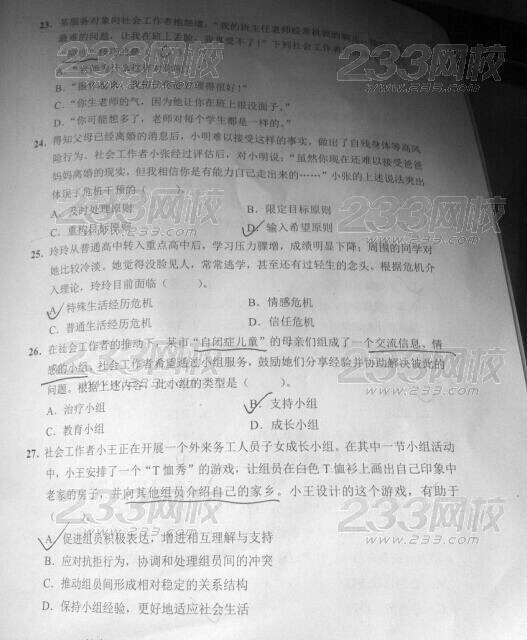 23. 某服务对象向社会工作者抱怨道，“我的班主任老师经常挑我的
最难的问题，让我在班上丢脸，我真受不了！”下列社会工作者
B. “振作起来，我相信你能处理得很好！”
C. “你生老师的气，因为他让你在班上很没面子。”
D. “你可能想多了，老师对每个学生都是一样的。”
24. 得知父母已经离婚的消息后，小明难以接受这样的事实，做出了自残身体等高风
险行为。社会工作者小张经过评估后，对小明说：“虽然你现在还难以接受爸爸
妈妈离婚的现实，但我相信你是有能力自己走出来的……”小张的上述说法突出
体现了危机干预的（ ）。
A. 及时处理原则 B. 限定目标原则
C. 重构目标原则 D. 输入希望原则
25. 玲玲从普通高中转入重点高中后，学习压力骤增，成绩明显下降；周围的同学对
她比较冷淡。她觉得没脸见人，常常逃学，甚至还有过轻生的念头。根据危机介
入理论，玲玲目前面临（ ）。
A. 特殊生活经历危机 B. 情感危机
C. 普通生活经历危机 D. 信任危机
26. 在社会工作者的推动下，某市“自闭症儿童”的母亲们组成了一个交流信息、情
感的小组。社会工作者希望通过小组服务，鼓励她们分享经验并协助解决彼此的
问题。根据上述内容，此小组的类型是（ ）。
A. 治疗小组 B. 支持小组
C. 教育小组 D. 成长小组
27. 社会工作者小王正在开展一个外来务工人员子女成长小组。在其中一节小组活动
中，小王安排了一个“T恤秀”的游戏，让组员在白色T恤衫上画出自己印象中
老家的房子，并向其他组员介绍自己的家乡。小王设计的这个游戏，有助于
（ ）
A. 促进组员积极表达，增进相互理解与支持
B. 应对抗拒行为，协调和处理组员间的冲突
C. 推动组员间形成相对稳定的关系结构
D. 保持小组经验，更好地适应社会生活
233网校
www.233.com